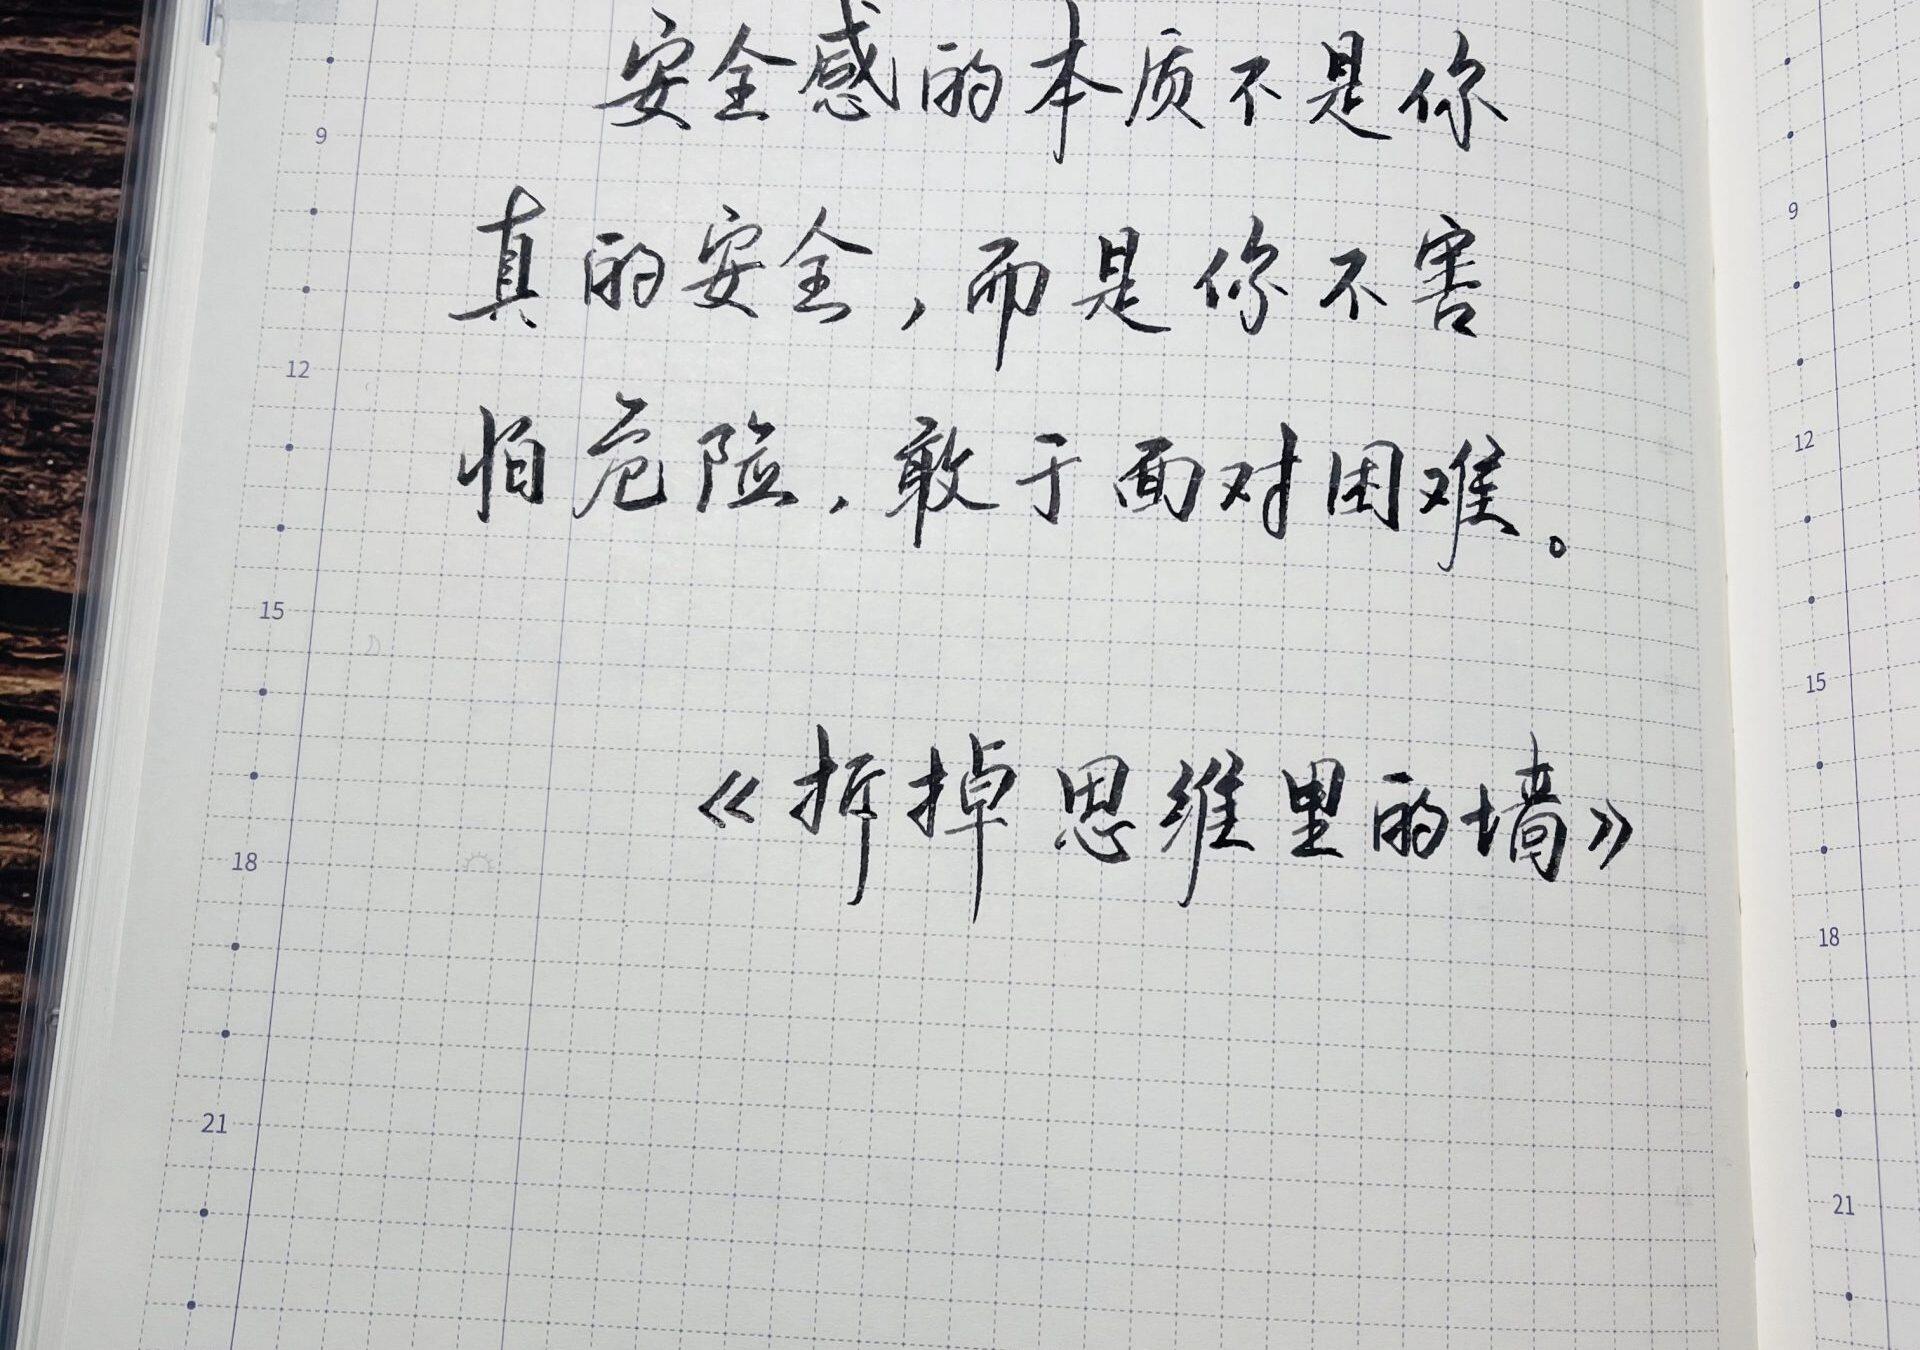 安全感的本质不是你
真的安全，而是你不害
怕危险，敢于面对困难。
《拆掉思维里的墙》
9
12
15
18
21
9
12
15
18
21